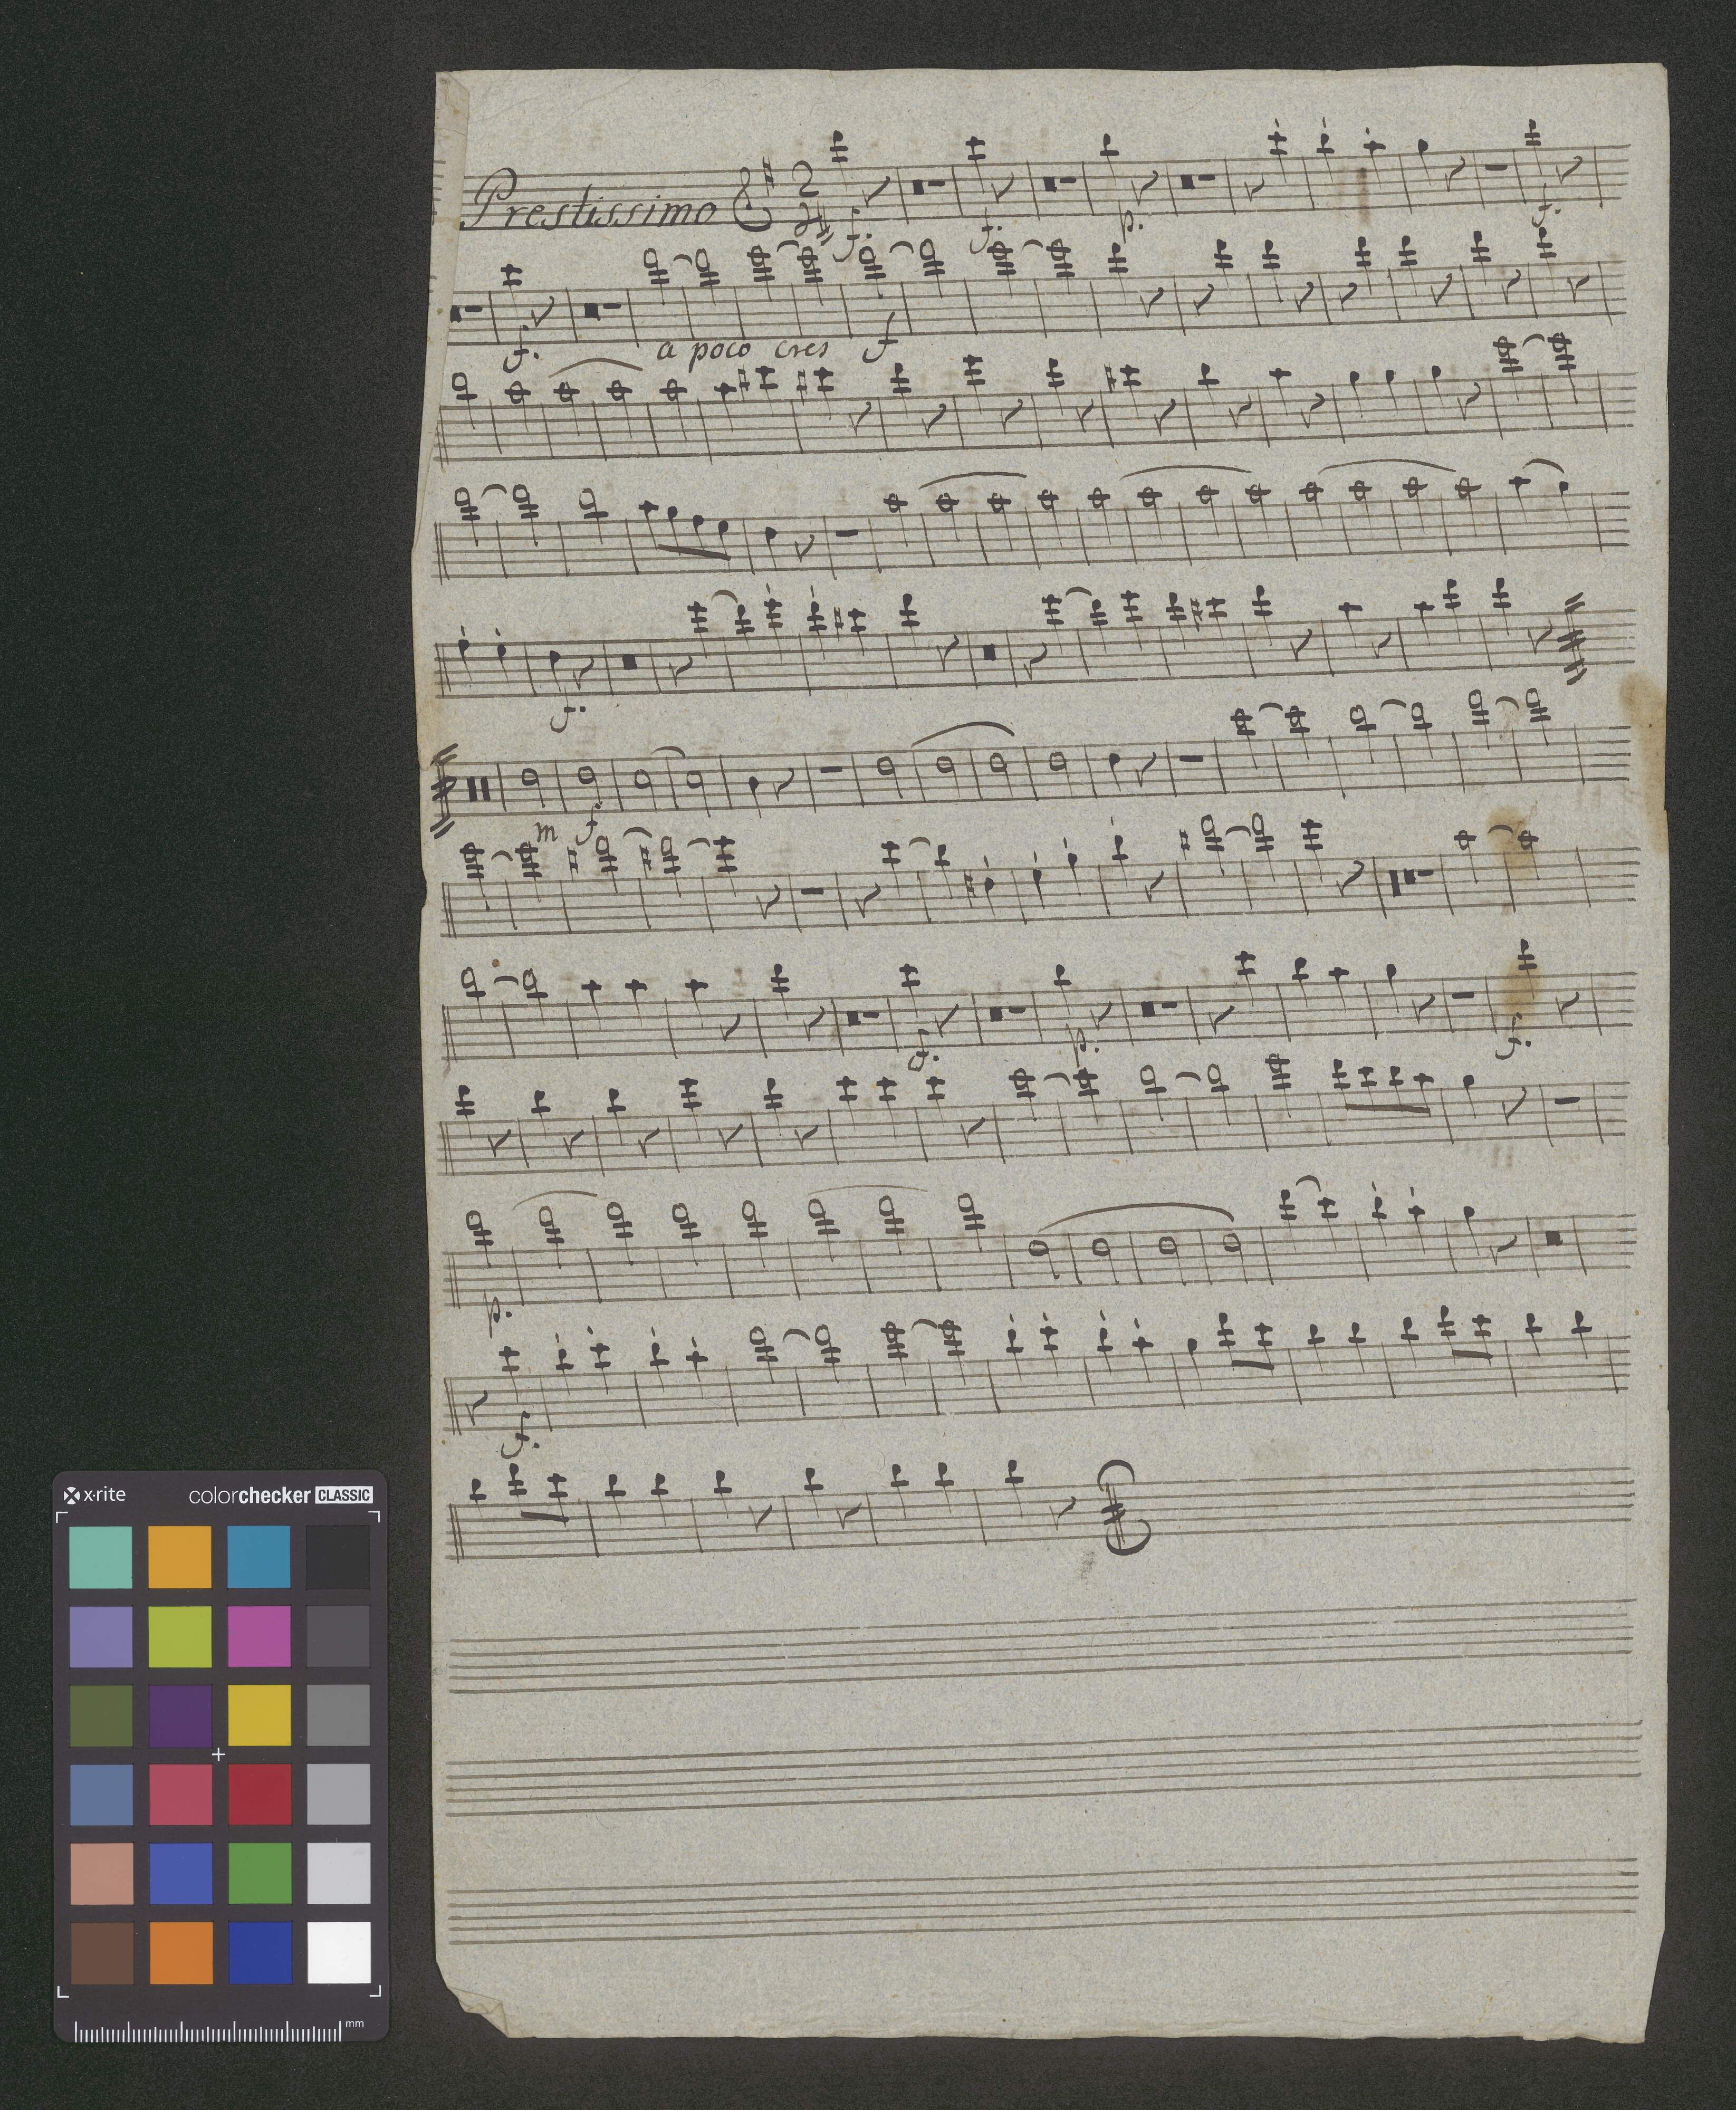 Prestissimo 2 f. f. p. f.
4
f. a poco cres f
f.
m f
f. p. f.
p.
f.
x·rite colorchecker CLASSIC
mm